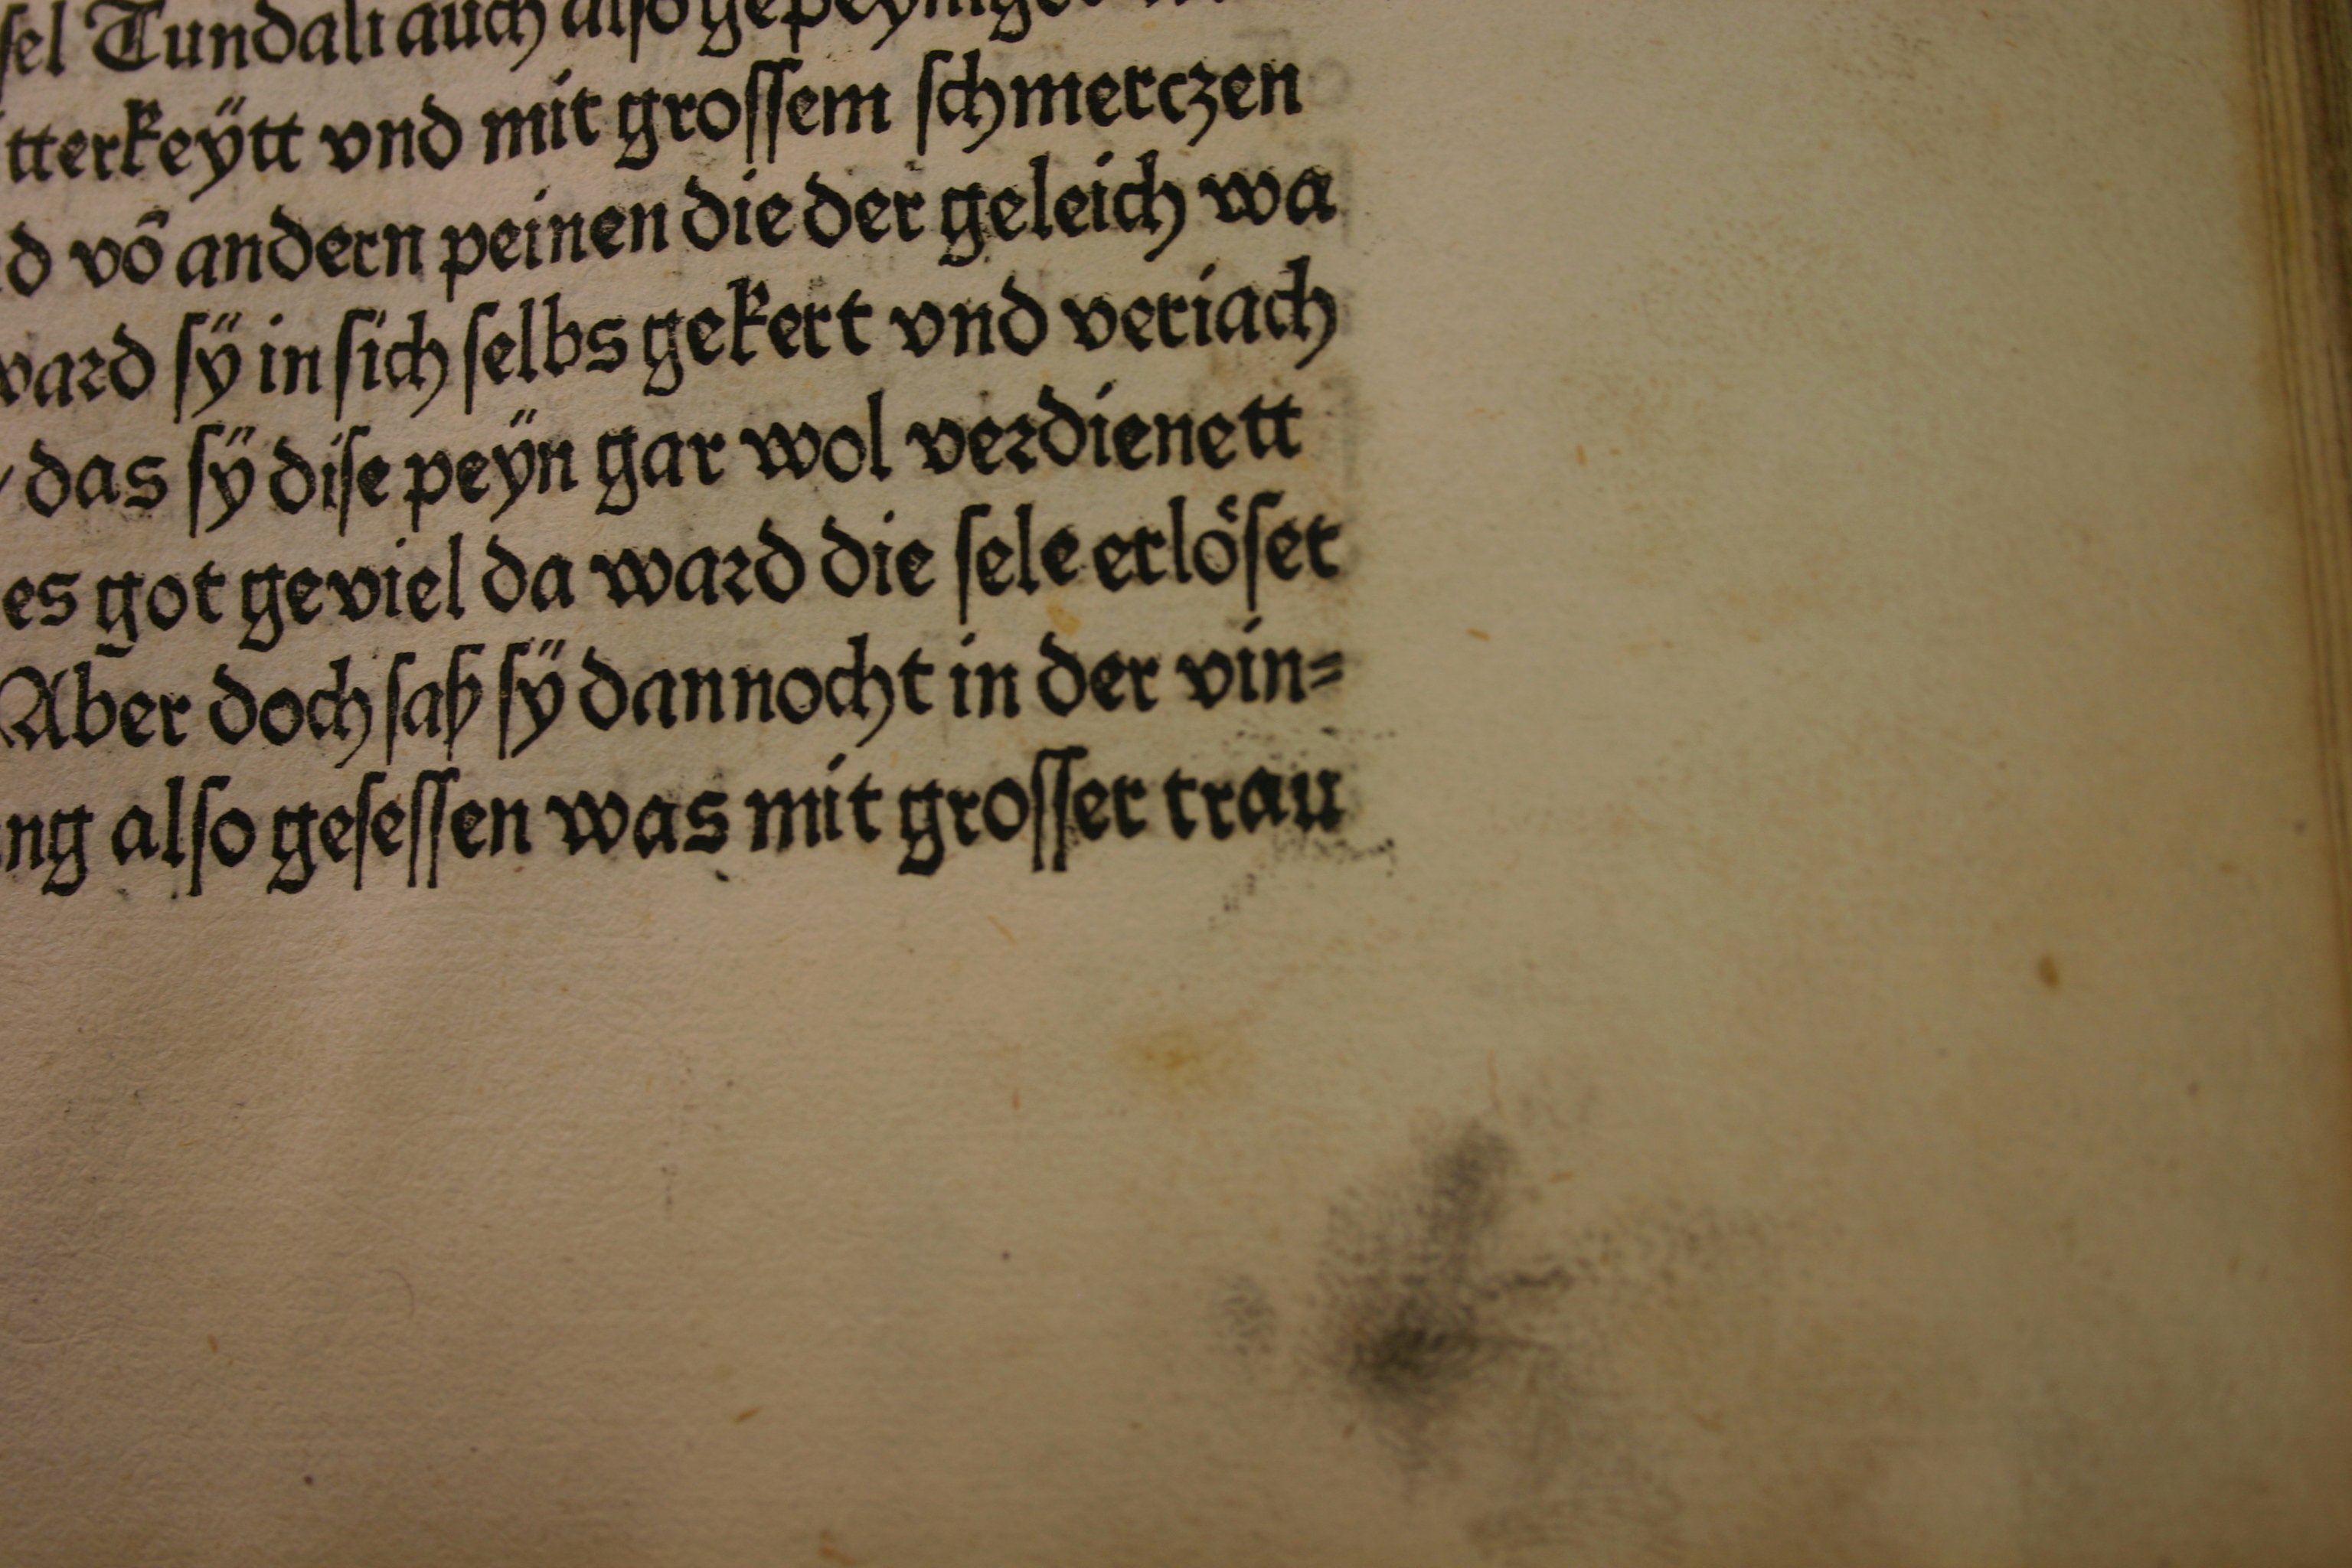 sel Tundali auch also
tterkeÿtt vnd mit grossem schmerczen
vō andern peinen die der geleich wa
ward sÿ in sich selbs gekert vnd veriach
/ das sÿ dise peÿn gar wol verdienett
es got geviel da ward die sele erlöset
Aber doch saß sÿ dannocht in der vin=
ng also gesessen was mit grosser trau